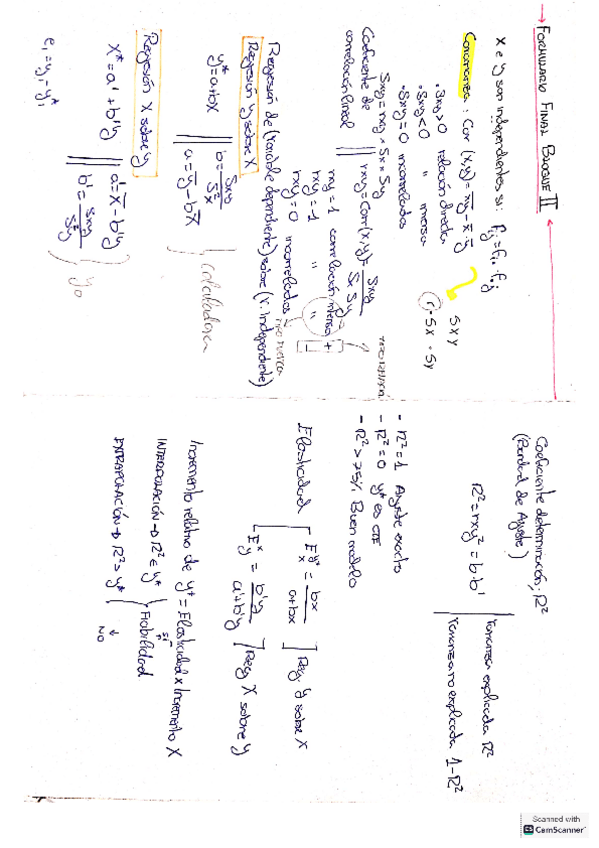 → FORMULARIO FINAL BLOQUE II ←
X e Y son independientes si: fij = fi. · f.j
Covarianza: Cov (x,y) = m11 - x̄ · ȳ → Sxy
r · Sx · Sy
· Sxy>0 relación directa
· Sxy<0 " inversa
· Sxy=0 incorreladas
Sxy = rxy · Sx · Sy
Coeficiente de correlación lineal || rxy = Cov(x,y) = Sxy / Sx Sy
rxy = 1 correlación intensa +
rxy = -1 " " -
rxy = 0 incorreladas
Regresión de (variable dependiente) sobre (v. independiente)
Regresión Y sobre X
y* = a + bx || b = Sxy / S²x
a = ȳ - b x̄
calculadora
Regresión X sobre Y
X* = a' + b'y || a' = x̄ - b'ȳ
b' = Sxy / S²y
yo
ei = yi - yi*
Coeficiente determinación: R²
(Bondad de Ajuste)
R² = rxy² = b · b'
Varianza explicada R²
Varianza no explicada 1-R²
- R²=1 Ajuste exacto
- R²=0 y* es CTE
- R²>75% Buen modelo
Elasticidad
E y*/x = bx / a+bx ] Reg. Y sobre X
E x/y = b'y / a'+b'y ] Reg X sobre Y
Incremento relativo de y* = Elasticidad x Incremento X
INTERPOLACIÓN → R² ∈ y* SI
Fiabilidad
EXTRAPOLACIÓN → R² > y*
↓
NO
Scanned with
CS CamScanner